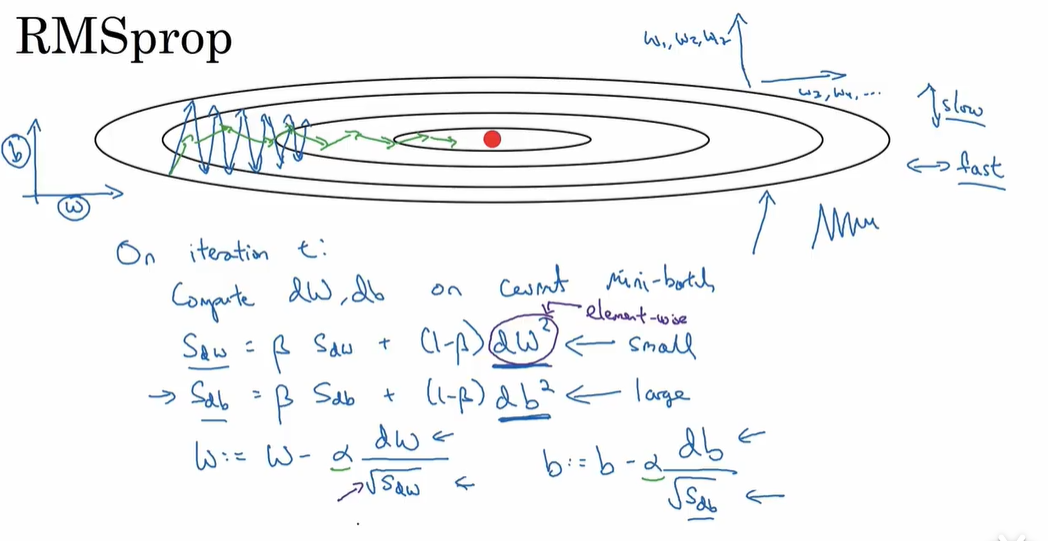 RMSprop
w₁, w₂, w₇
w₃, w₄, ...
slow
fast
b
w
On iteration t:
Compute dW, db on current mini-batch
element-wise
S_dw = β S_dw + (1-β) dW² ← small
→ S_db = β S_db + (1-β) db² ← large
W := W - α dW / √S_dw ←
b := b - α db / √S_db ←